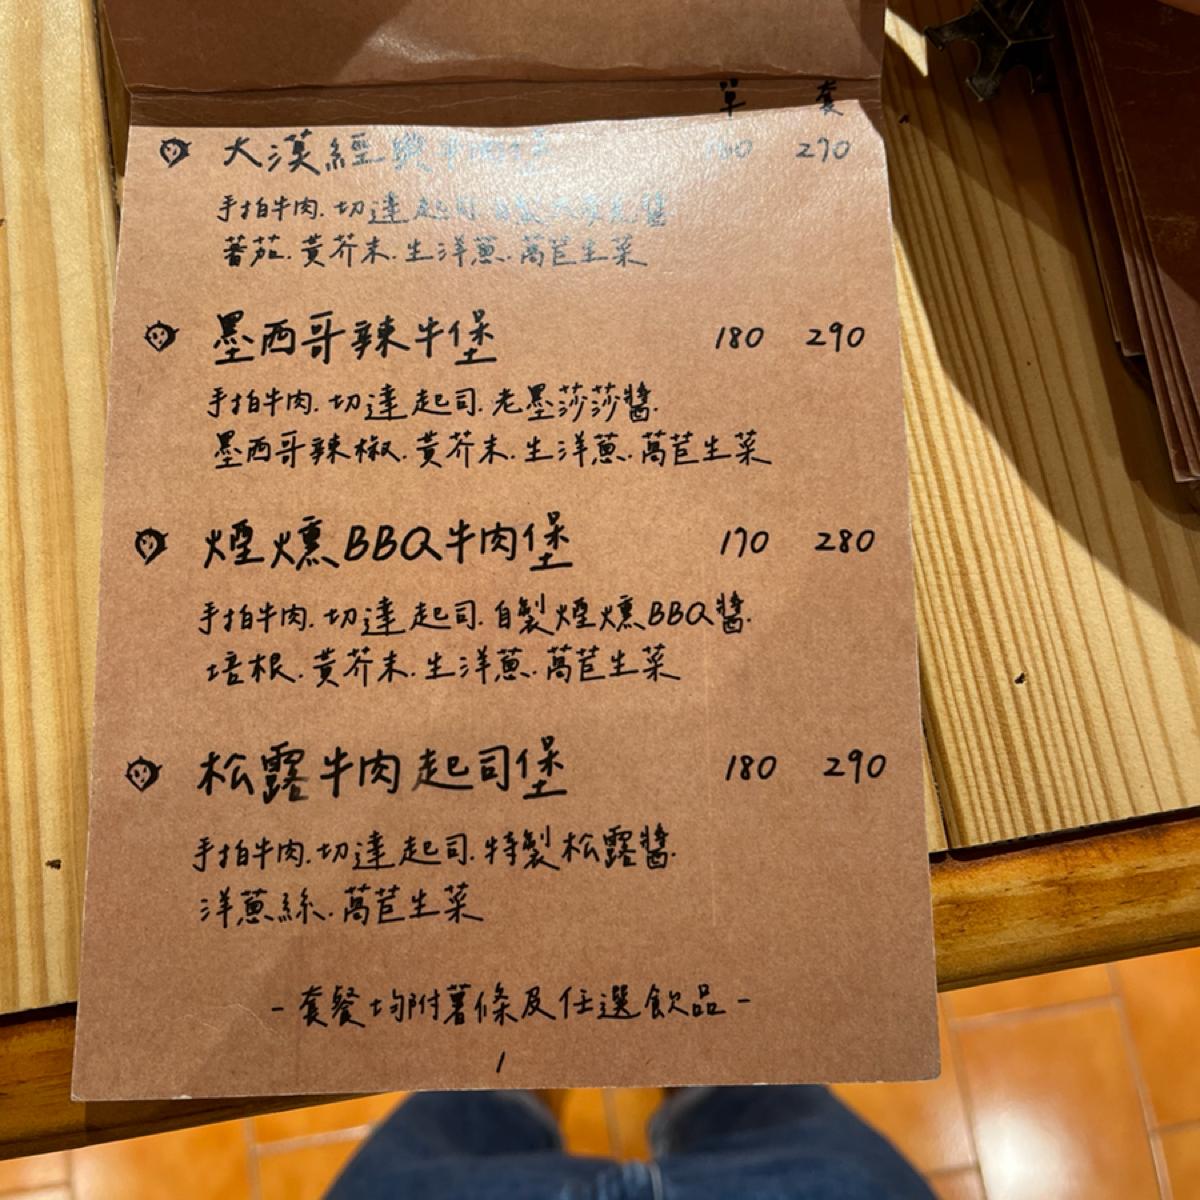 單 套
大漠經典牛肉堡 160 270
手拍牛肉.切達起司.自製大漠醬
蕃茄.黃芥末.生洋蔥.萵苣生菜
墨西哥辣牛堡 180 290
手拍牛肉.切達起司.老墨莎莎醬.
墨西哥辣椒.黃芥末.生洋蔥.萵苣生菜
煙燻BBQ牛肉堡 170 280
手拍牛肉.切達起司.自製煙燻BBQ醬.
培根.黃芥末.生洋蔥.萵苣生菜
松露牛肉起司堡 180 290
手拍牛肉.切達起司.特製松露醬.
洋蔥絲.萵苣生菜
-套餐均附薯條及任選飲品-
1